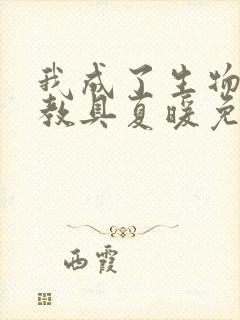 我成了生物
教具夏暖免
西霞